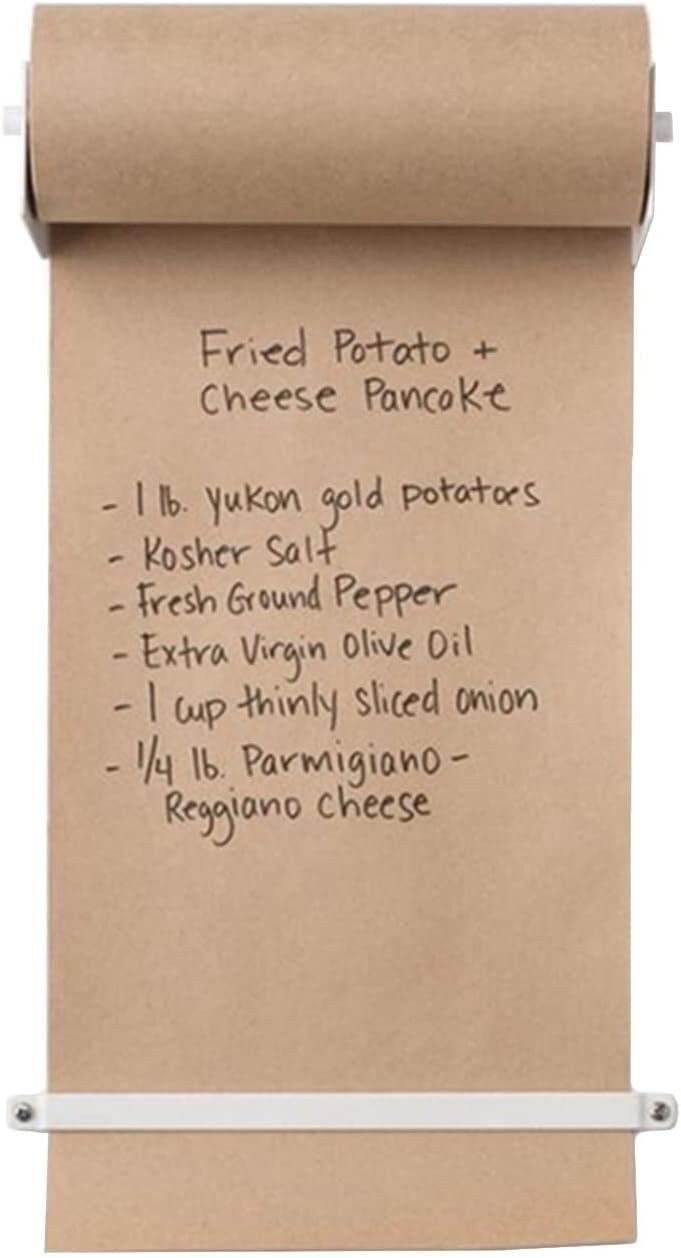 Fried Potato +
Cheese Pancake
- 1 lb. yukon gold potatoes
- Kosher Salt
- Fresh Ground Pepper
- Extra Virgin Olive Oil
- 1 cup thinly sliced onion
- 1/4 lb. Parmigiano-
Reggiano cheese